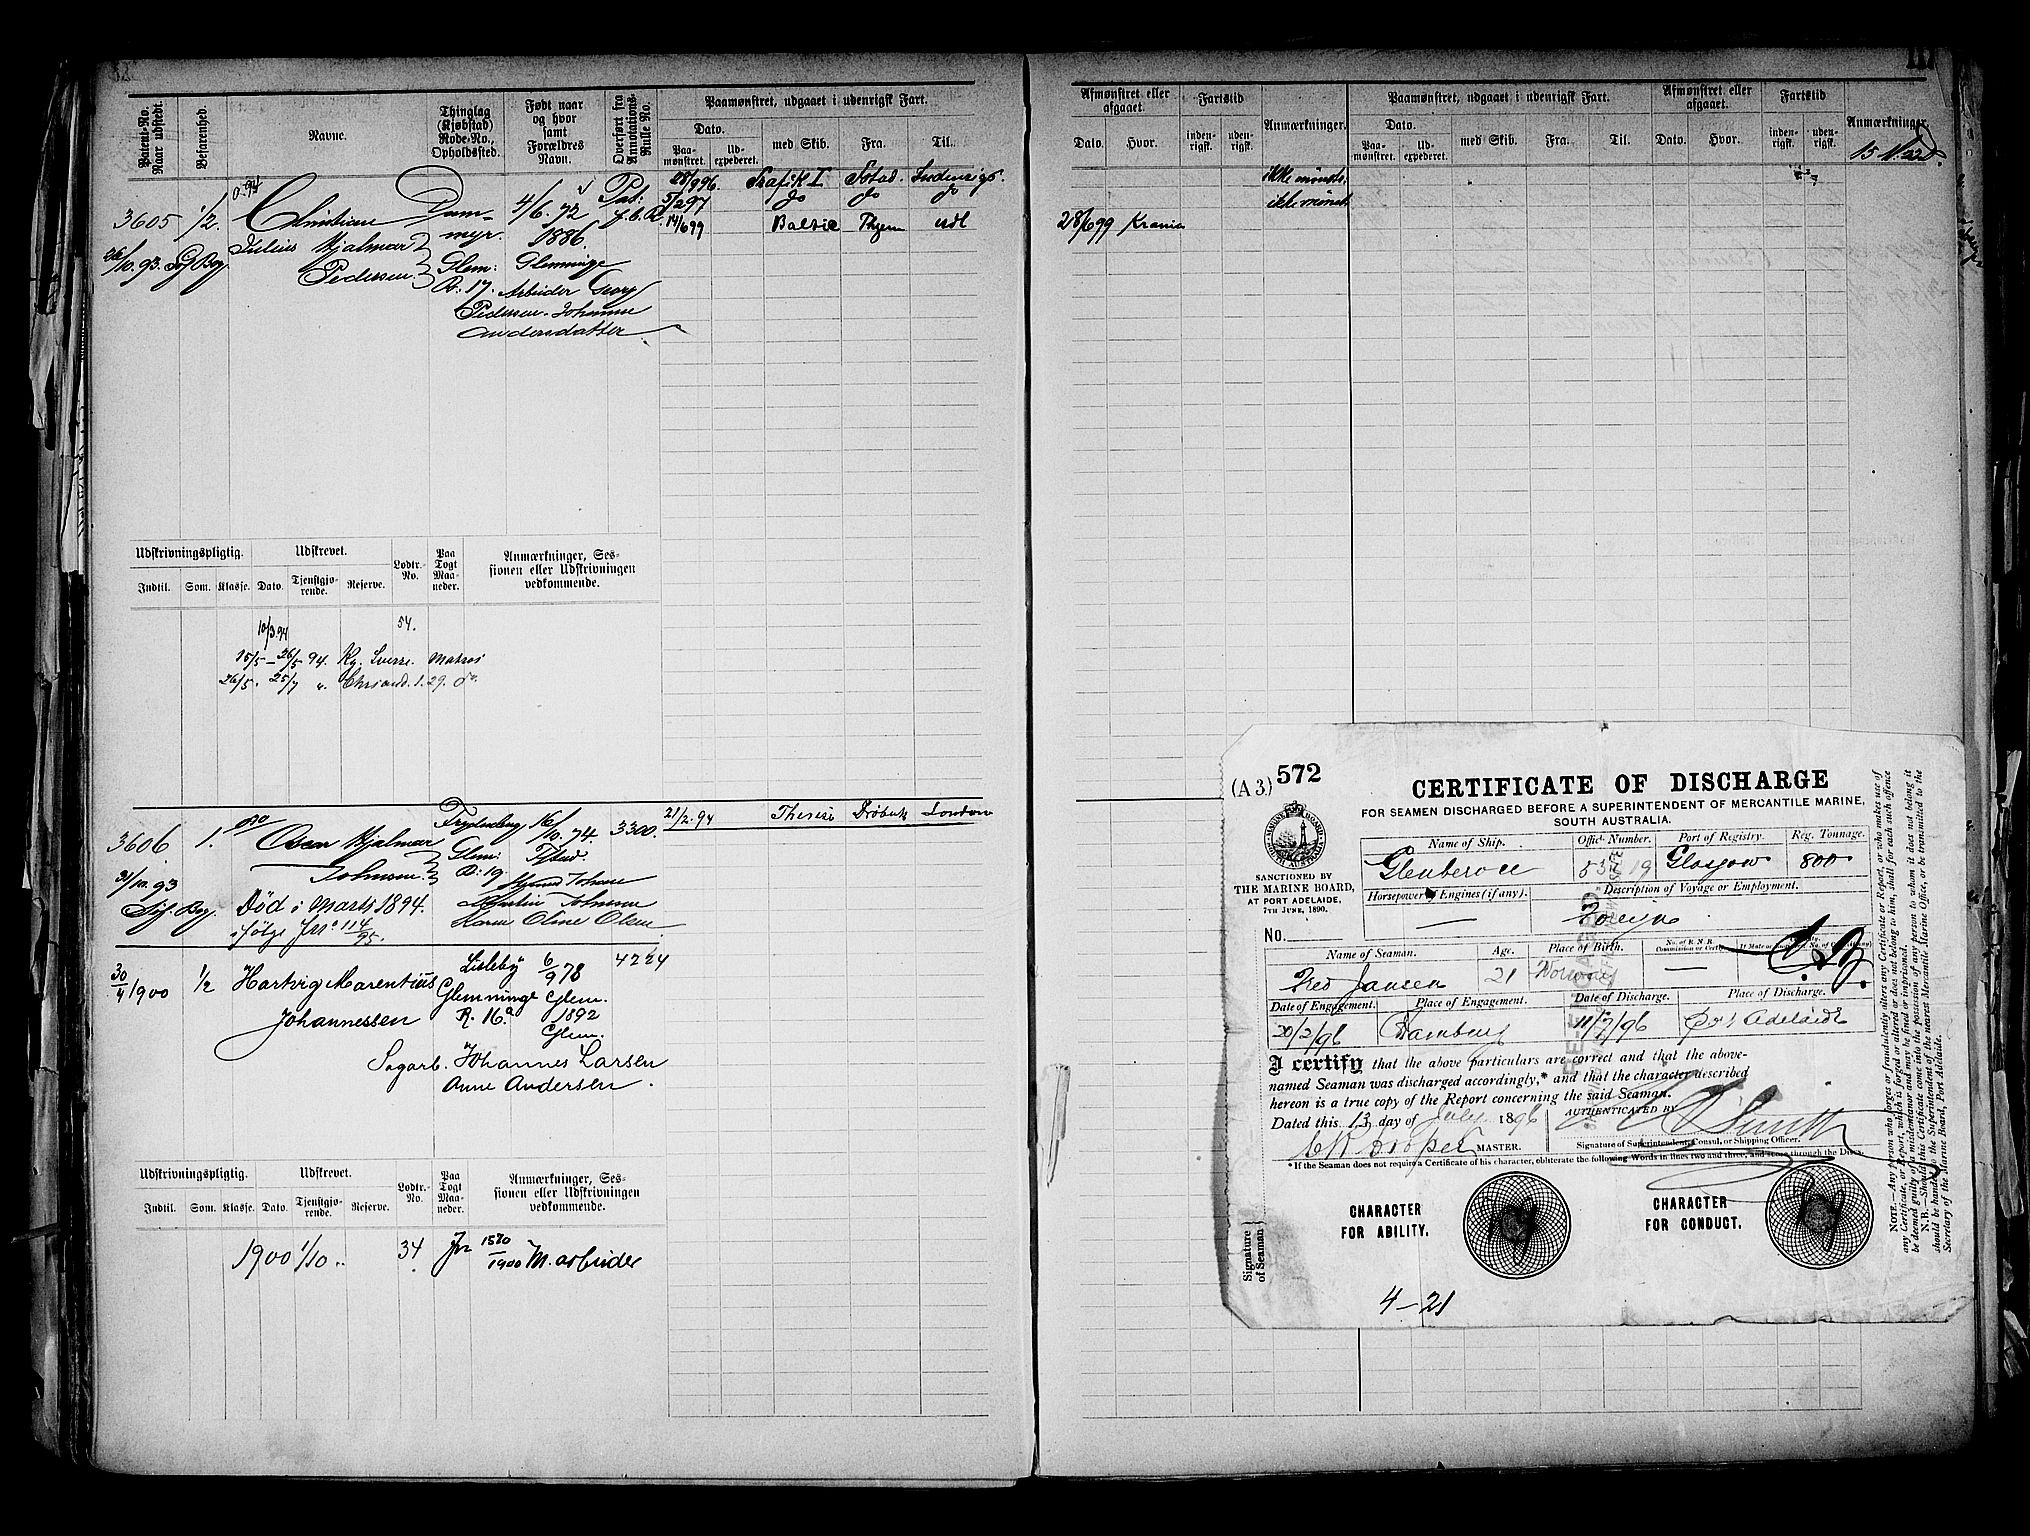 Patent-No. Naar udstedt.
Befarenhed.
Navne.
Thinglag (Kjøbstad) Rode-No., Opholdssted.
Født naar og hvor samt Forældres Navn.
Overført fra Annotations-Rulle No.
Paamønstret, udgaaet i udenrigsk Fart.
Dato.
Paa-mønstret.
Ud-expederet.
med Skib.
Fra.
Til.
3605
1/2.
Christian
Dam-
4/6. 72
Pat:
28/9 96
Trafik I
Julius Hjalmar
myr.
1886.
5/2 97
do
do
do
Pedersen
Glem:
Glemminge
14/6 99
udl
26/10. 93.
R: 17.
Arbeider Georg
Pedersen. Johanne
Andersdatter
Udskrivningspligtig.
Udskrevet.
Lodtr.-No.
Paa Togt Maa-neder.
Anmærkninger, Ses-sionen eller Udskrivningen vedkommende.
Indtil.
Som.
Klasse.
Dato.
Tjenstgjø-rende.
Reserve.
10/3 94
54.
15/5 - 26/5 94. Kg. Sverre. Matros
26/5. 25/7 " Chrsand. 1. 29. do.
3606
1.
Oscar Hjalmar
Johnsen
16/10. 74.
3300.
21/2. 94
Therese
Drøbak
London
Glem:
R: 19.
31/10. 93
Død i Marts 1894.
ifølge Jrn 114/95.
Martin Johnsen
Karen Oline Olsen
30/4 1900
1/2
Hartvig Marentius
Johannessen
Lisleby
Glemminge
R. 16a
6/9 78
Glem.
1892
Glem.
4224
Sagarb. Johannes Larsen
Anne Andersen.
Udskrivningspligtig.
Udskrevet.
Lodtr.-No.
Paa Togt Maa-neder.
Anmærkninger, Ses-sionen eller Udskrivningen vedkommende.
Indtil.
Som.
Klasse.
Dato.
Tjenstgjø-rende.
Reserve.
1900 1/10
34
Jrn 1570/1900 M. arbeider
Afmønstret eller afgaaet.
Fartstid
Anmærkninger.
Paamønstret, udgaaet i udenrigsk Fart.
Afmønstret eller afgaaet.
Fartstid
Anmærkninger.
Dato.
Hvor.
inden-rigsk.
uden-rigsk.
Dato.
Paa-mønstret.
Ud-expederet.
med Skib.
Fra.
Til.
Dato.
Hvor.
inden-rigsk.
uden-rigsk.
ikke mønstr.
ikke mønst.
28/6 99 Krania
(A 3.) 572
CERTIFICATE OF DISCHARGE
FOR SEAMEN DISCHARGED BEFORE A SUPERINTENDENT OF MERCANTILE MARINE,
SOUTH AUSTRALIA.
SANCTIONED BY
THE MARINE BOARD,
AT PORT ADELAIDE,
7TH JUNE, 1890.
No.
Name of Ship.
Offic. Number.
Port of Registry.
Reg. Tonnage.
Glenbervie
Glasgow
800
Horsepower of Engines (if any).
Description of Voyage or Employment.
Foreign
Name of Seaman.
Age.
Place of Birth.
Fred Jansen
21
Norway
Date of Engagement.
Place of Engagement.
Date of Discharge.
Place of Discharge.
20/2/96
Hamburg
11/7/96
Port Adelaide
I certify that the above particulars are correct and that the above-
named Seaman was discharged accordingly,* and that the character described
hereon is a true copy of the Report concerning the said Seaman.
Dated this 13 day of July 1896
AUTHENTICATED BY
MASTER.
Signature of Superintendent, Consul, or Shipping Officer.
* If the Seaman does not require a Certificate of his character, obliterate the following Words in lines two and three, and score through the Discs.
CHARACTER
FOR ABILITY.
CHARACTER
FOR CONDUCT.
Signature of Seaman
4-21
NOTE.—Any person who forges or fraudulently alters any Certificate or Report, or who makes use of
any Certificate, or Report, which is forged or altered or does not belong to him, shall for each such offence
be deemed guilty of a misdemeanor and may be fined or imprisoned.
N.B.—Should this Certificate come into the possession of any person to whom it does not belong it
should be handed to the Superintendent of the nearest Mercantile Marine Office, or be transmitted to the
Secretary of the Marine Board, Port Adelaide.